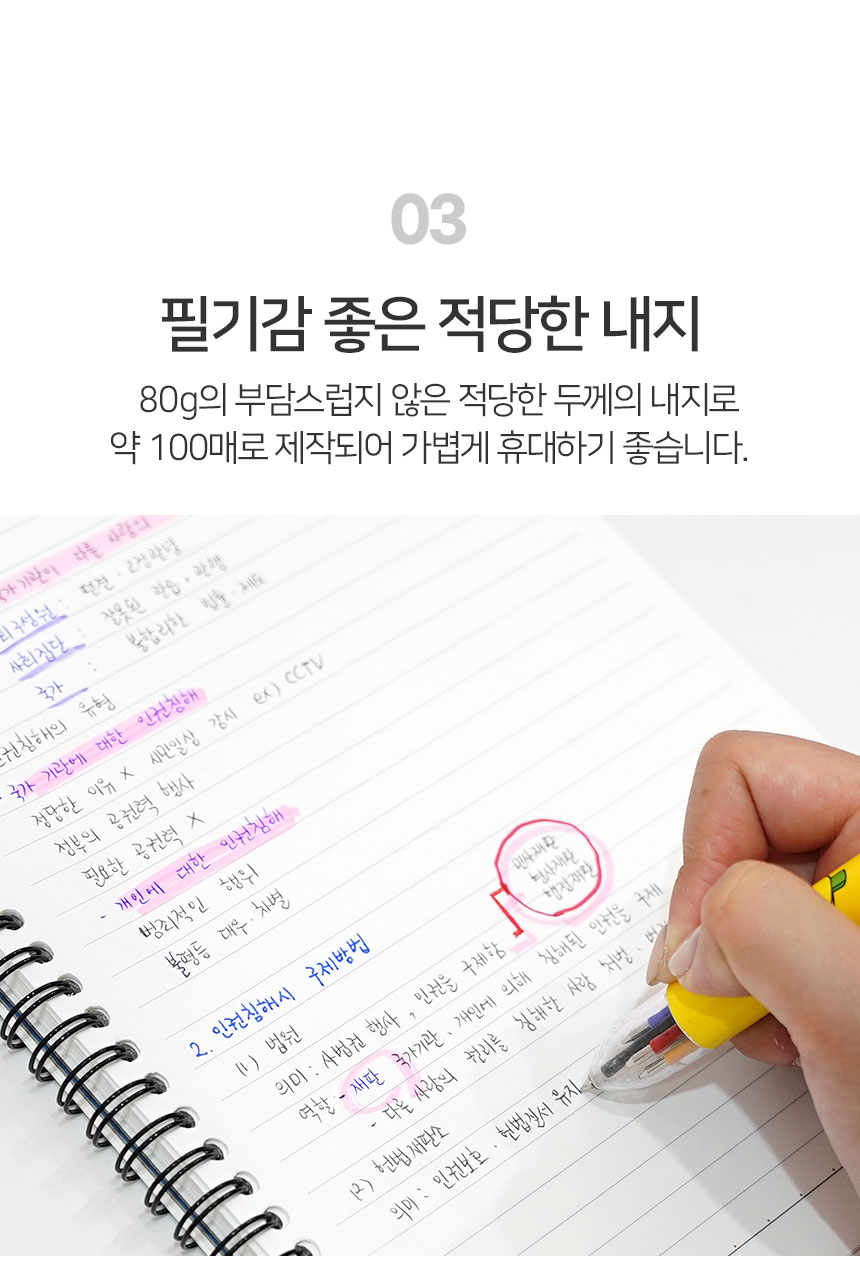 03
필기감 좋은 적당한 내지
80g의 부담스럽지 않은 적당한 두께의 내지로
약 100매로 제작되어 가볍게 휴대하기 좋습니다.
국가기관이 다른 사람의
: 편견·고정관념
사회집단 : 잘못된 관습·관행
국가 : 불합리한 법률·제도
인권침해의 유형
- 국가 기관에 대한 인권침해
정당한 이유 X 시민일상 감시 ex) CCTV
정부의 공권력 행사
필요한 공권력 X
- 개인에 대한 인권침해
범죄적인 행위
불평등 대우·차별
민사재판
형사재판
행정재판
2. 인권침해시 구제방법
(1) 법원
의미 : 사법권 행사, 인권을 구제함
역할 - 재판 국가기관, 개인에 의해 침해된 인권을 구제
- 다른 사람의 권리를 침해한 사람 처벌·
(2) 헌법재판소
의미 : 인권보호·헌법질서 유지